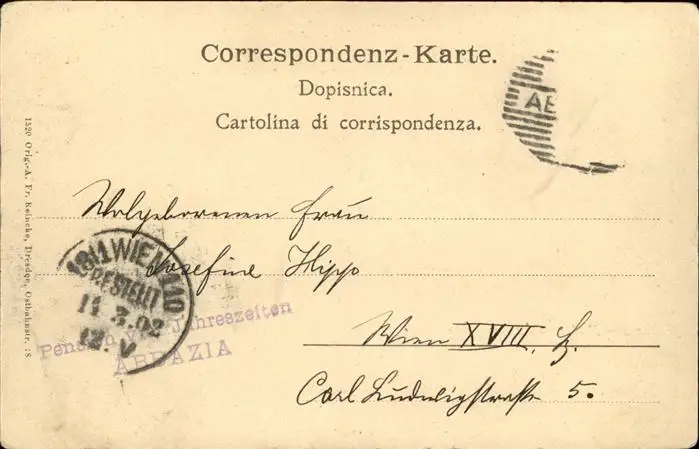 Correspondenz-Karte.
Dopisnica.
Cartolina di corrispondenza.
AB
1520 Orig.-A. Fr. Reinecke, Dresden, Ostbahnstr. 18
Wolgeborenen Frau
Josefine Hippo
Wien XVIII,
Carl Ludwigstraße 5.
18/1 WIEN 110
BESTELLT
11.3.02
12. V
Jahreszeiten
ABBAZIA